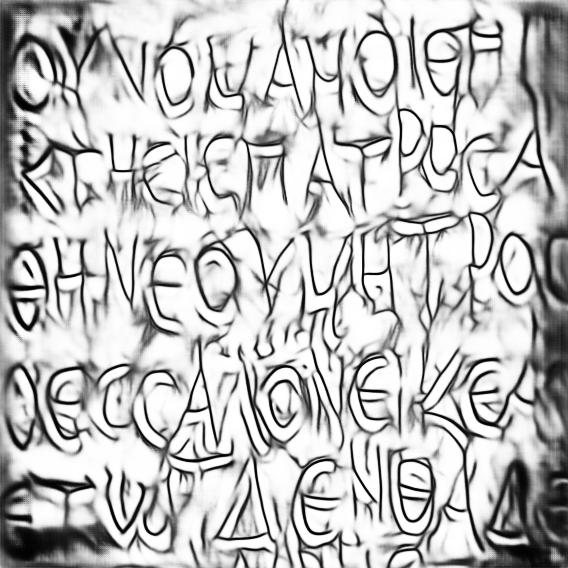 ΟΥΝΟΜΑΜΟΙΘΗ
ΚΤΗCΙCΠΑΤΡΟCΑ
ΘΗΝΕΟΥΜΗΤΡΟC
ΘΕCCΑΛΟΝΕΙΚΕΑ
ΕΤΩΔΕΝΘΑΔΕ